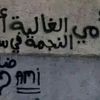 أمي الغالية أ
النجمة في س
ami